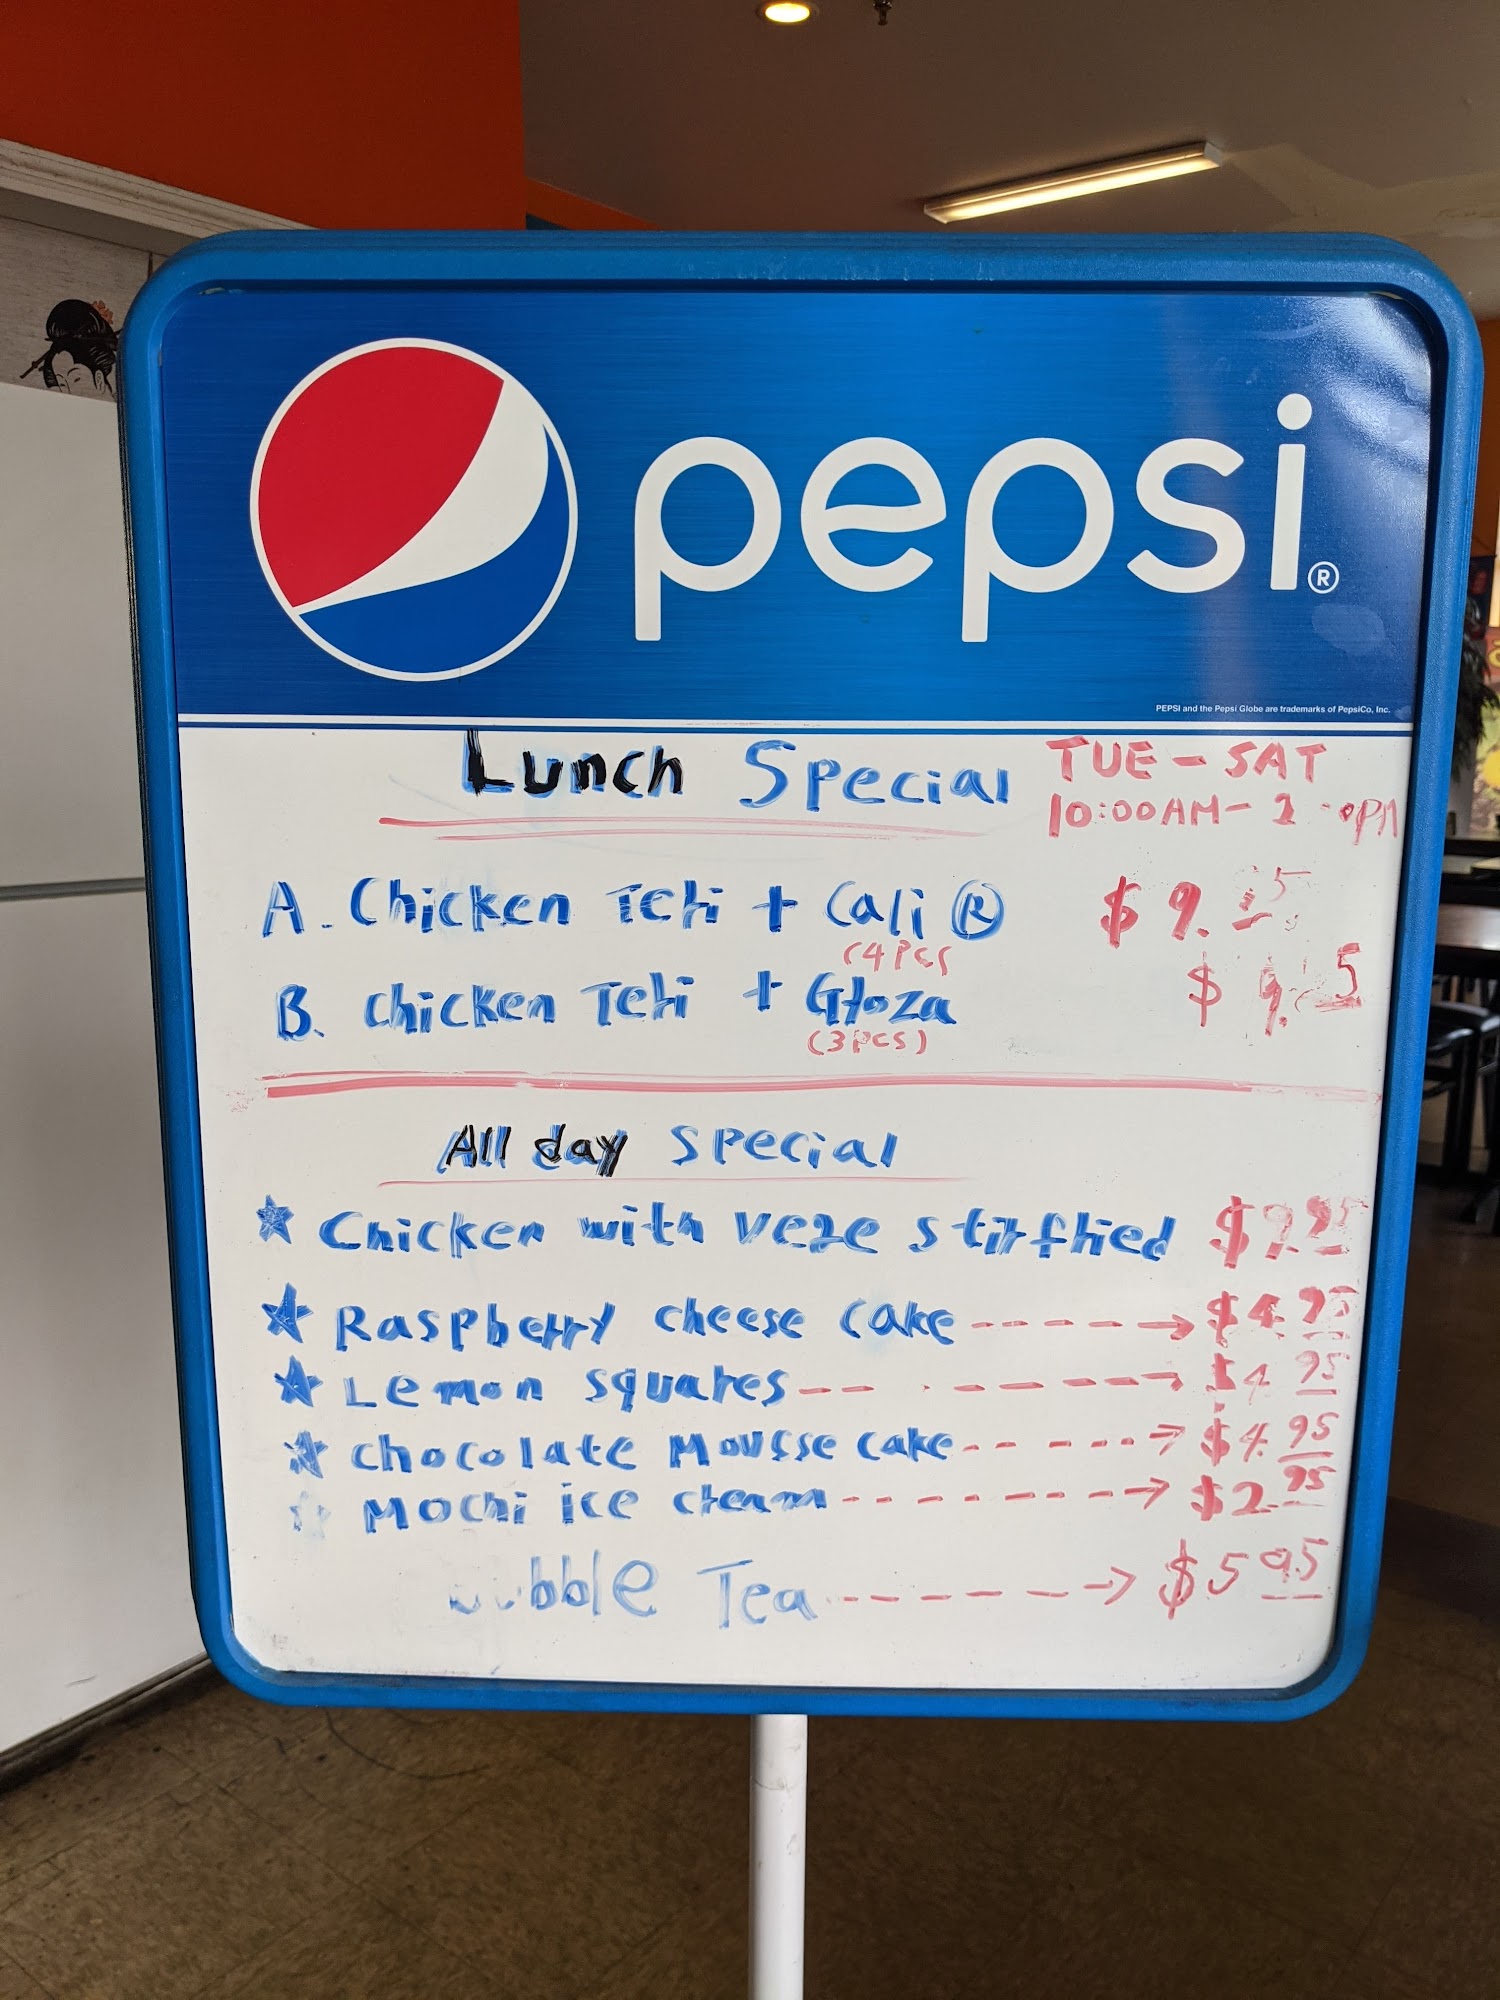 pepsi®
PEPSI and the Pepsi Globe are trademarks of PepsiCo, Inc.
Lunch Special TUE - SAT
10:00AM -
A. Chicken Teri + Cali Ⓡ $9.
(4PCS
B. Chicken Teri + Gioza $
(3PCS)
All day special
★ Chicken with vege stirfried
★ Raspberry cheese cake -----→ $4.95
★ Lemon squares ------→ $4.95
★ Chocolate Mousse cake ------→ $4.95
☆ Mochi ice cream -------→ $2.95
Tea ------→ $5.95